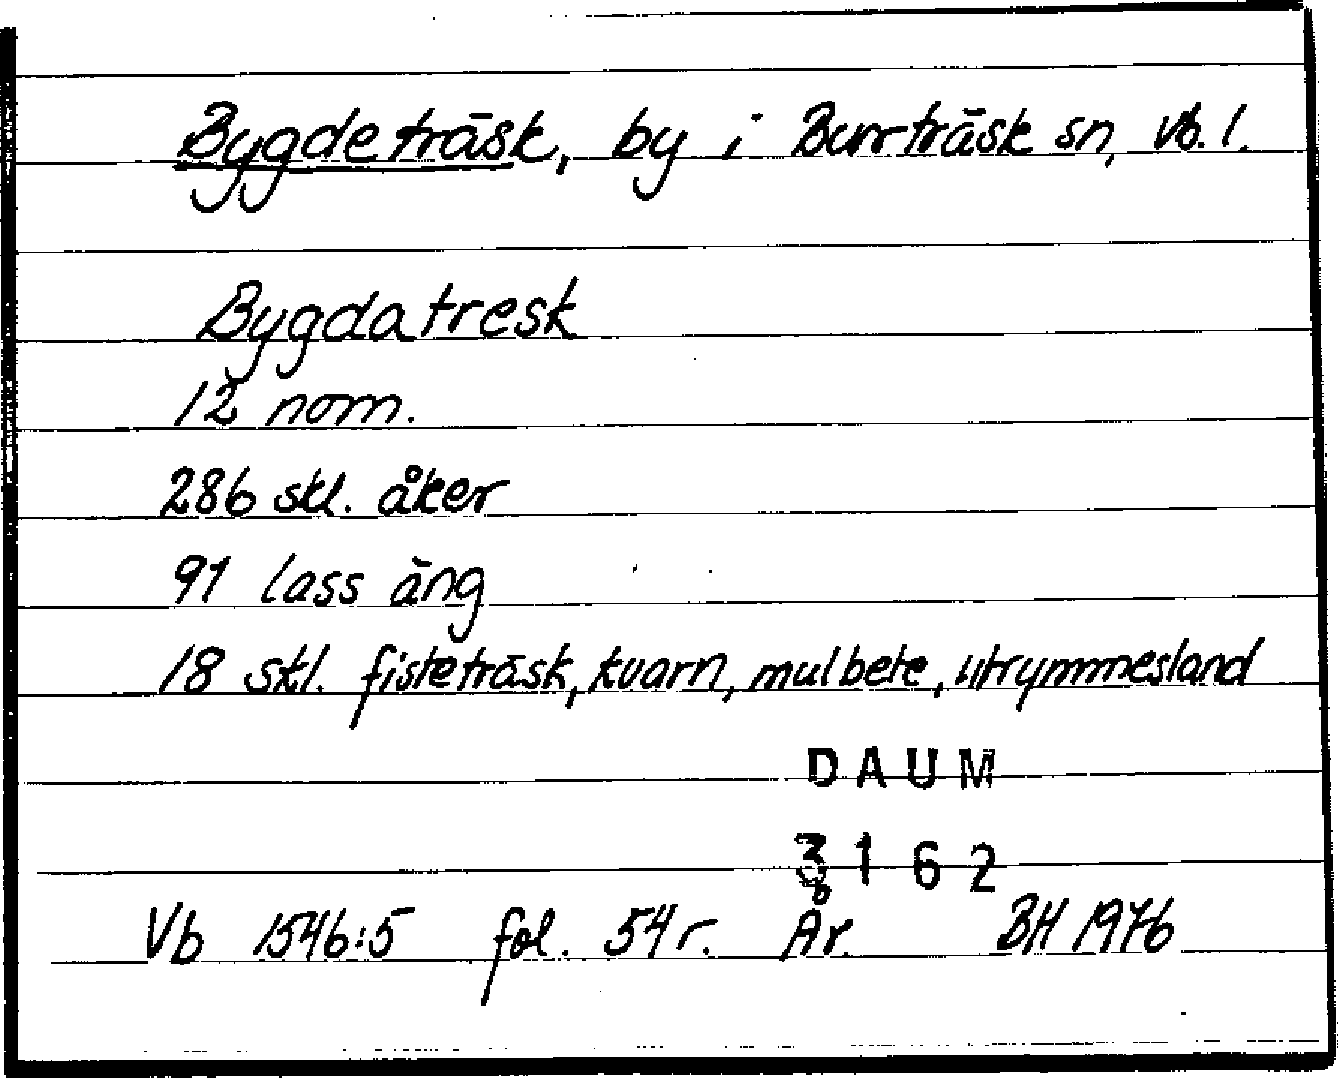 Bygdeträsk, by i Burträsk sn, Vb. l.
Bygdatresk
12 nom.
286 skl. åker
91 lass äng
18 skl. fisketräsk, kvarn, mulbete, utrymmesland
DAUM
3162
Vb 1546:5 fol. 54 r. År. BH 1976